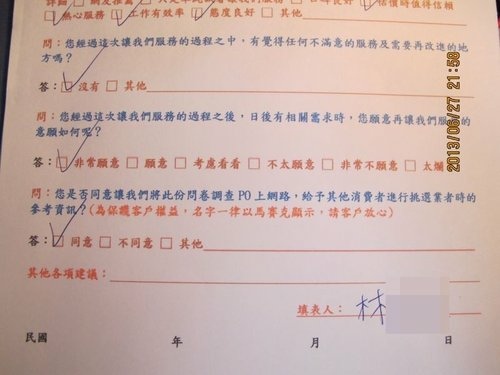 詳細 □ 網友推薦 □ 只是單純試用看我們服務 □ 口碑良好 □ 估價時值得信賴
□ 熱心服務 □ 工作有效率 □ 態度良好 □ 其他
問：您經過這次讓我們服務的過程之中，有覺得任何不滿意的服務及需要再改進的地
方嗎？
答：□ 沒有 □ 其他
問：您經過這次讓我們服務的過程之後，日後有相關需求時，您願意再讓我們服務的
意願如何呢？
答：□ 非常願意 □ 願意 □ 考慮看看 □ 不太願意 □ 非常不願意 □ 太爛
問：您是否同意讓我們將此份問卷調查PO上網路，給予其他消費者進行挑選業者時的
參考資訊？(為保護客戶權益，名字一律以馬賽克顯示，請客戶放心)
答：□ 同意 □ 不同意 □ 其他
其他各項建議：
填表人：林
民國 年 月 日
2013/06/27 21:58